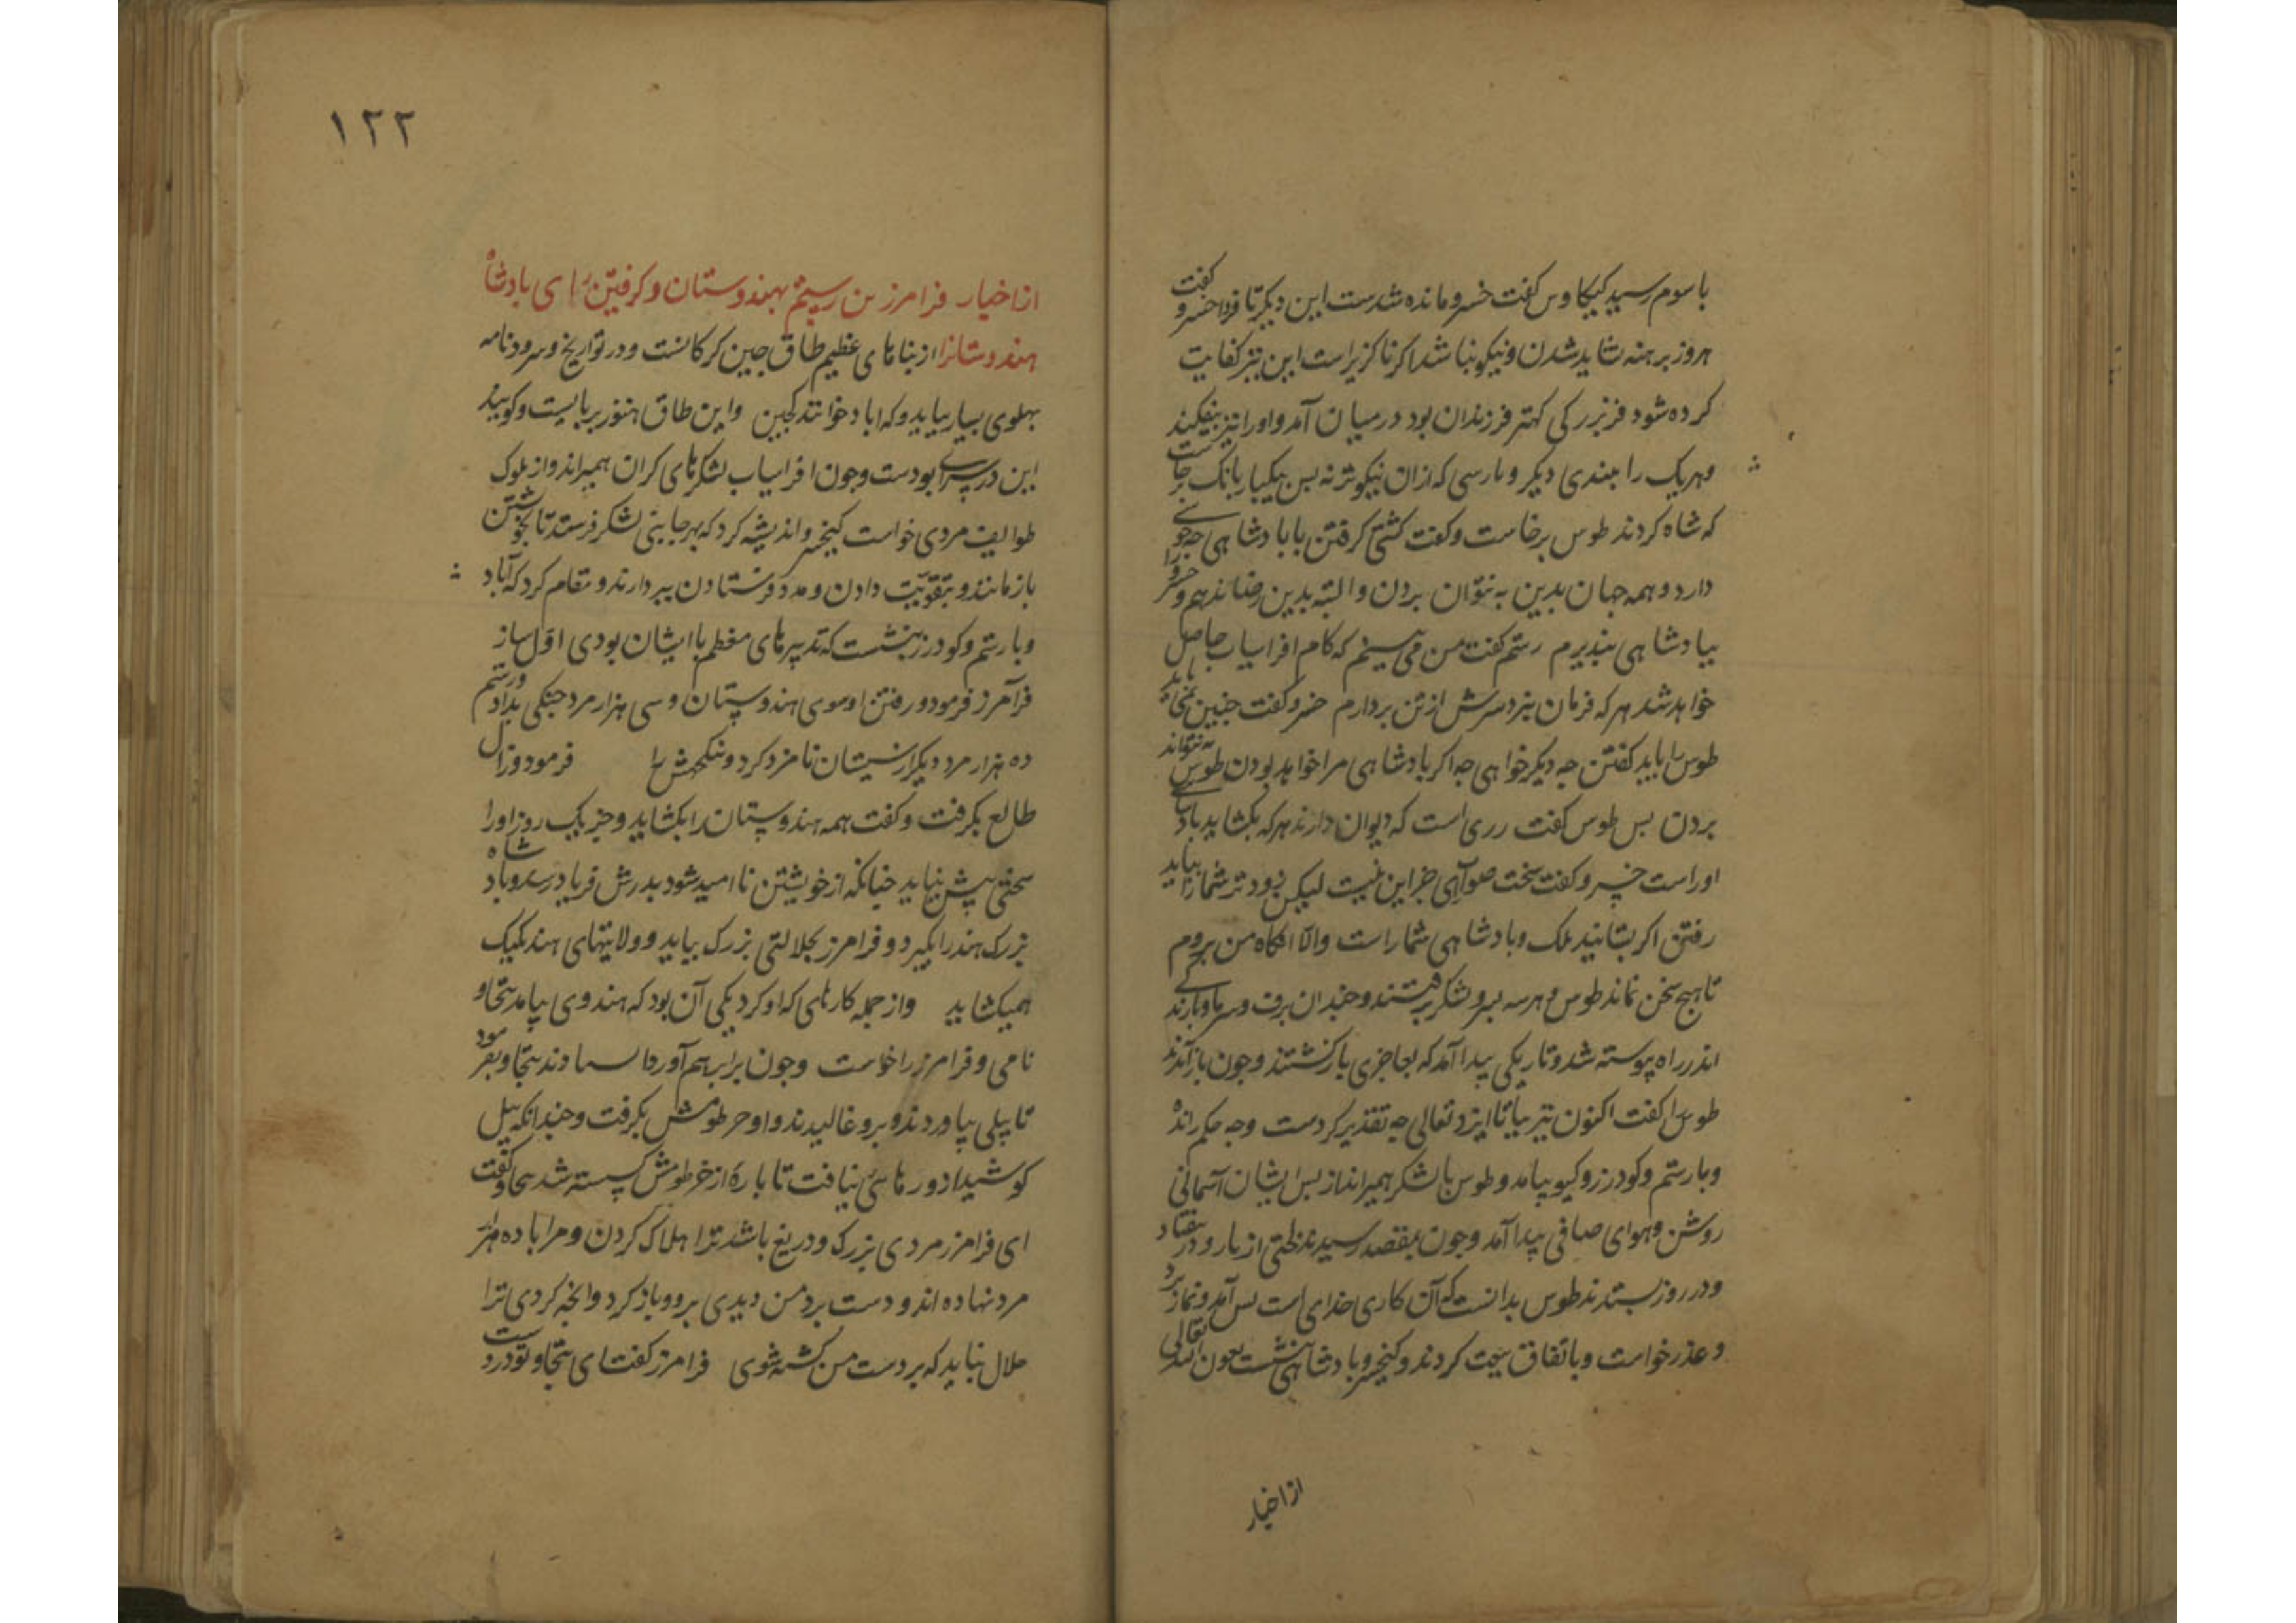 باسوم رسید کیکاوس گفت خسرو مانده شدست این دیگر تا فردا خسرو گفت
هر روز برهنه شاید شدن و نیکو نباشد اگر ناگزیر است این نیز کفایت
کرده شود فریزر کی کهتر فرزندان بود در میان آمد و اورا نیز بیفکند
وهریک را بندی دیگر و بارسی که ازان نیکوتر نه بس بیکبار بانک
که شاه کردند طوس برخاست و کفت کشتی کرفتن با بادشاهی جه
دارد و همه جهان بدین به نتوان بردن و البته بدین رضا ندهم و خسرو را
ببادشاهی نبذیرم رستم کفت من می بینم که کام افراسیاب حاصل
خواهد شد هرکه فرمان نبرد سرش از تن بردارم خسرو کفت جنین نمی باید
طوس را باید کفتن جه دیکر خواهی جه اکر بادشاهی مرا خواهد بودن طوس به نتواند
بردن بس طوس کفت دری است که دیوان دارند هرکه بکشاید بادشاهی
اوراست خسرو کفت سخت صوابی جز این نیست لیکن زودتر شما را بباید
رفتن اکر بستانید ملک و بادشاهی شما راست والا انکاه من بروم
تا هیچ سخن نماند طوس و هر سه بسر و لشکر برفتند و جندان برف و سرما و بارندکی
اندر راه پیوسته شد و تاریکی پیدا آمد که بعاجزی بازکشتند و جون بازآمدند
طوس را کفت اکنون نیز بیا تا ایزد تعالی جه تقدیر کردست وجه حکم رانده
و با رستم و کودرز و کیو بیامد و طوس با لشکر همیراند از بس ایشان آسمانی
روشن و هوای صافی پیدا آمد و جون بمقصد رسیدند لختی از باره در بیفتاد
و در روز بستدند طوس بدانست که آن کاری خدای است بس آمد و نماز برد
و عذر خواست و باتفاق بیعت کردند و کیخسرو بادشاهی نشست بعون الله تعالی
از اخبار
١٢٢
از اخبار فرامرز بن رستم بهندوستان و کرفتن رای بادشاه
هندوستانرا از بناهای عظیم طاق جین کرکانست و در تواریخ و سرودنامه
بهلوی بسیار بیاید و که اباد خوانند کجین واین طاق هنوز بربایست و کویند
این در سرای بودست وجون افراسیاب لشکرهای کران همیراند و از ملوک
طوایف مردی خواست کیخسرو اندیشه کرد که بهر جایی لشکر فرستد تا بخویشتن
بازمانند و بتقویت دادن و مدد فرستادن نبردارند و مقام کرد که آباد
و با رستم و کودرز بنشست که تدبیرهای معظم با ایشان بودی اول ساز
فرامرز فرمود و رفتن او سوی هندوستان و سی هزار مرد جنکی بداد و رستم
ده هزار مرد دیکر از سیستان نامزد کرد و را فرمود و زال
طالع بکرفت و کفت همه هندوستان را بکشاید و جز یک روز او را
سختی پیش نیاید جنانکه از خویشتن ناامید شود بدرش فریاد رسد و بادشاه
بزرک هند را بکیرد و فرامرز بجلالتی بزرک بیاید و ولایتهای هند یکیک
همیکشاید واز جمله کارهای که او کرد یکی آن بود که هندوی بیامد تجاو
نامی و فرامرز را خواست وجون برابر هم آوردا تجاو بفرمود
تا پیلی بیاوردند و برو غالیدند و او خرطومش بکرفت و جندانکه پیل
کوشید ازو رهایی نیافت تا پاره از خرطومش کسسته شد تجاو کفت
ای فرامرز مردی بزرک و دریغ باشد ترا هلاک کردن و مرا با ده هزار
مرد نهاده اند و دست برد من دیدی برو و بازکرد و آنچه کردی ترا
حلال نباید که بر دست من کشته شوی فرامرز کفت ای تجاو تو درست